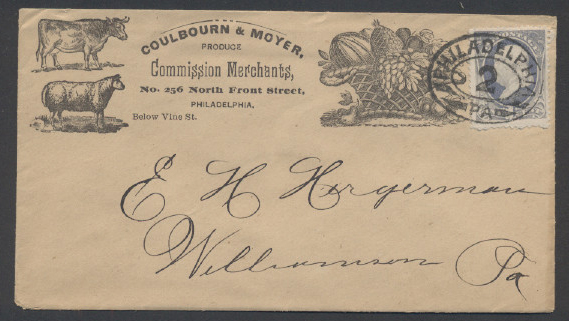 COULBOURN & MOYER,
PRODUCE
Commission Merchants,
No. 256 North Front Street,
PHILADELPHIA,
Below Vine St.
PHILADELPHIA
2
PA
E H Hergerman
Williamson Pa